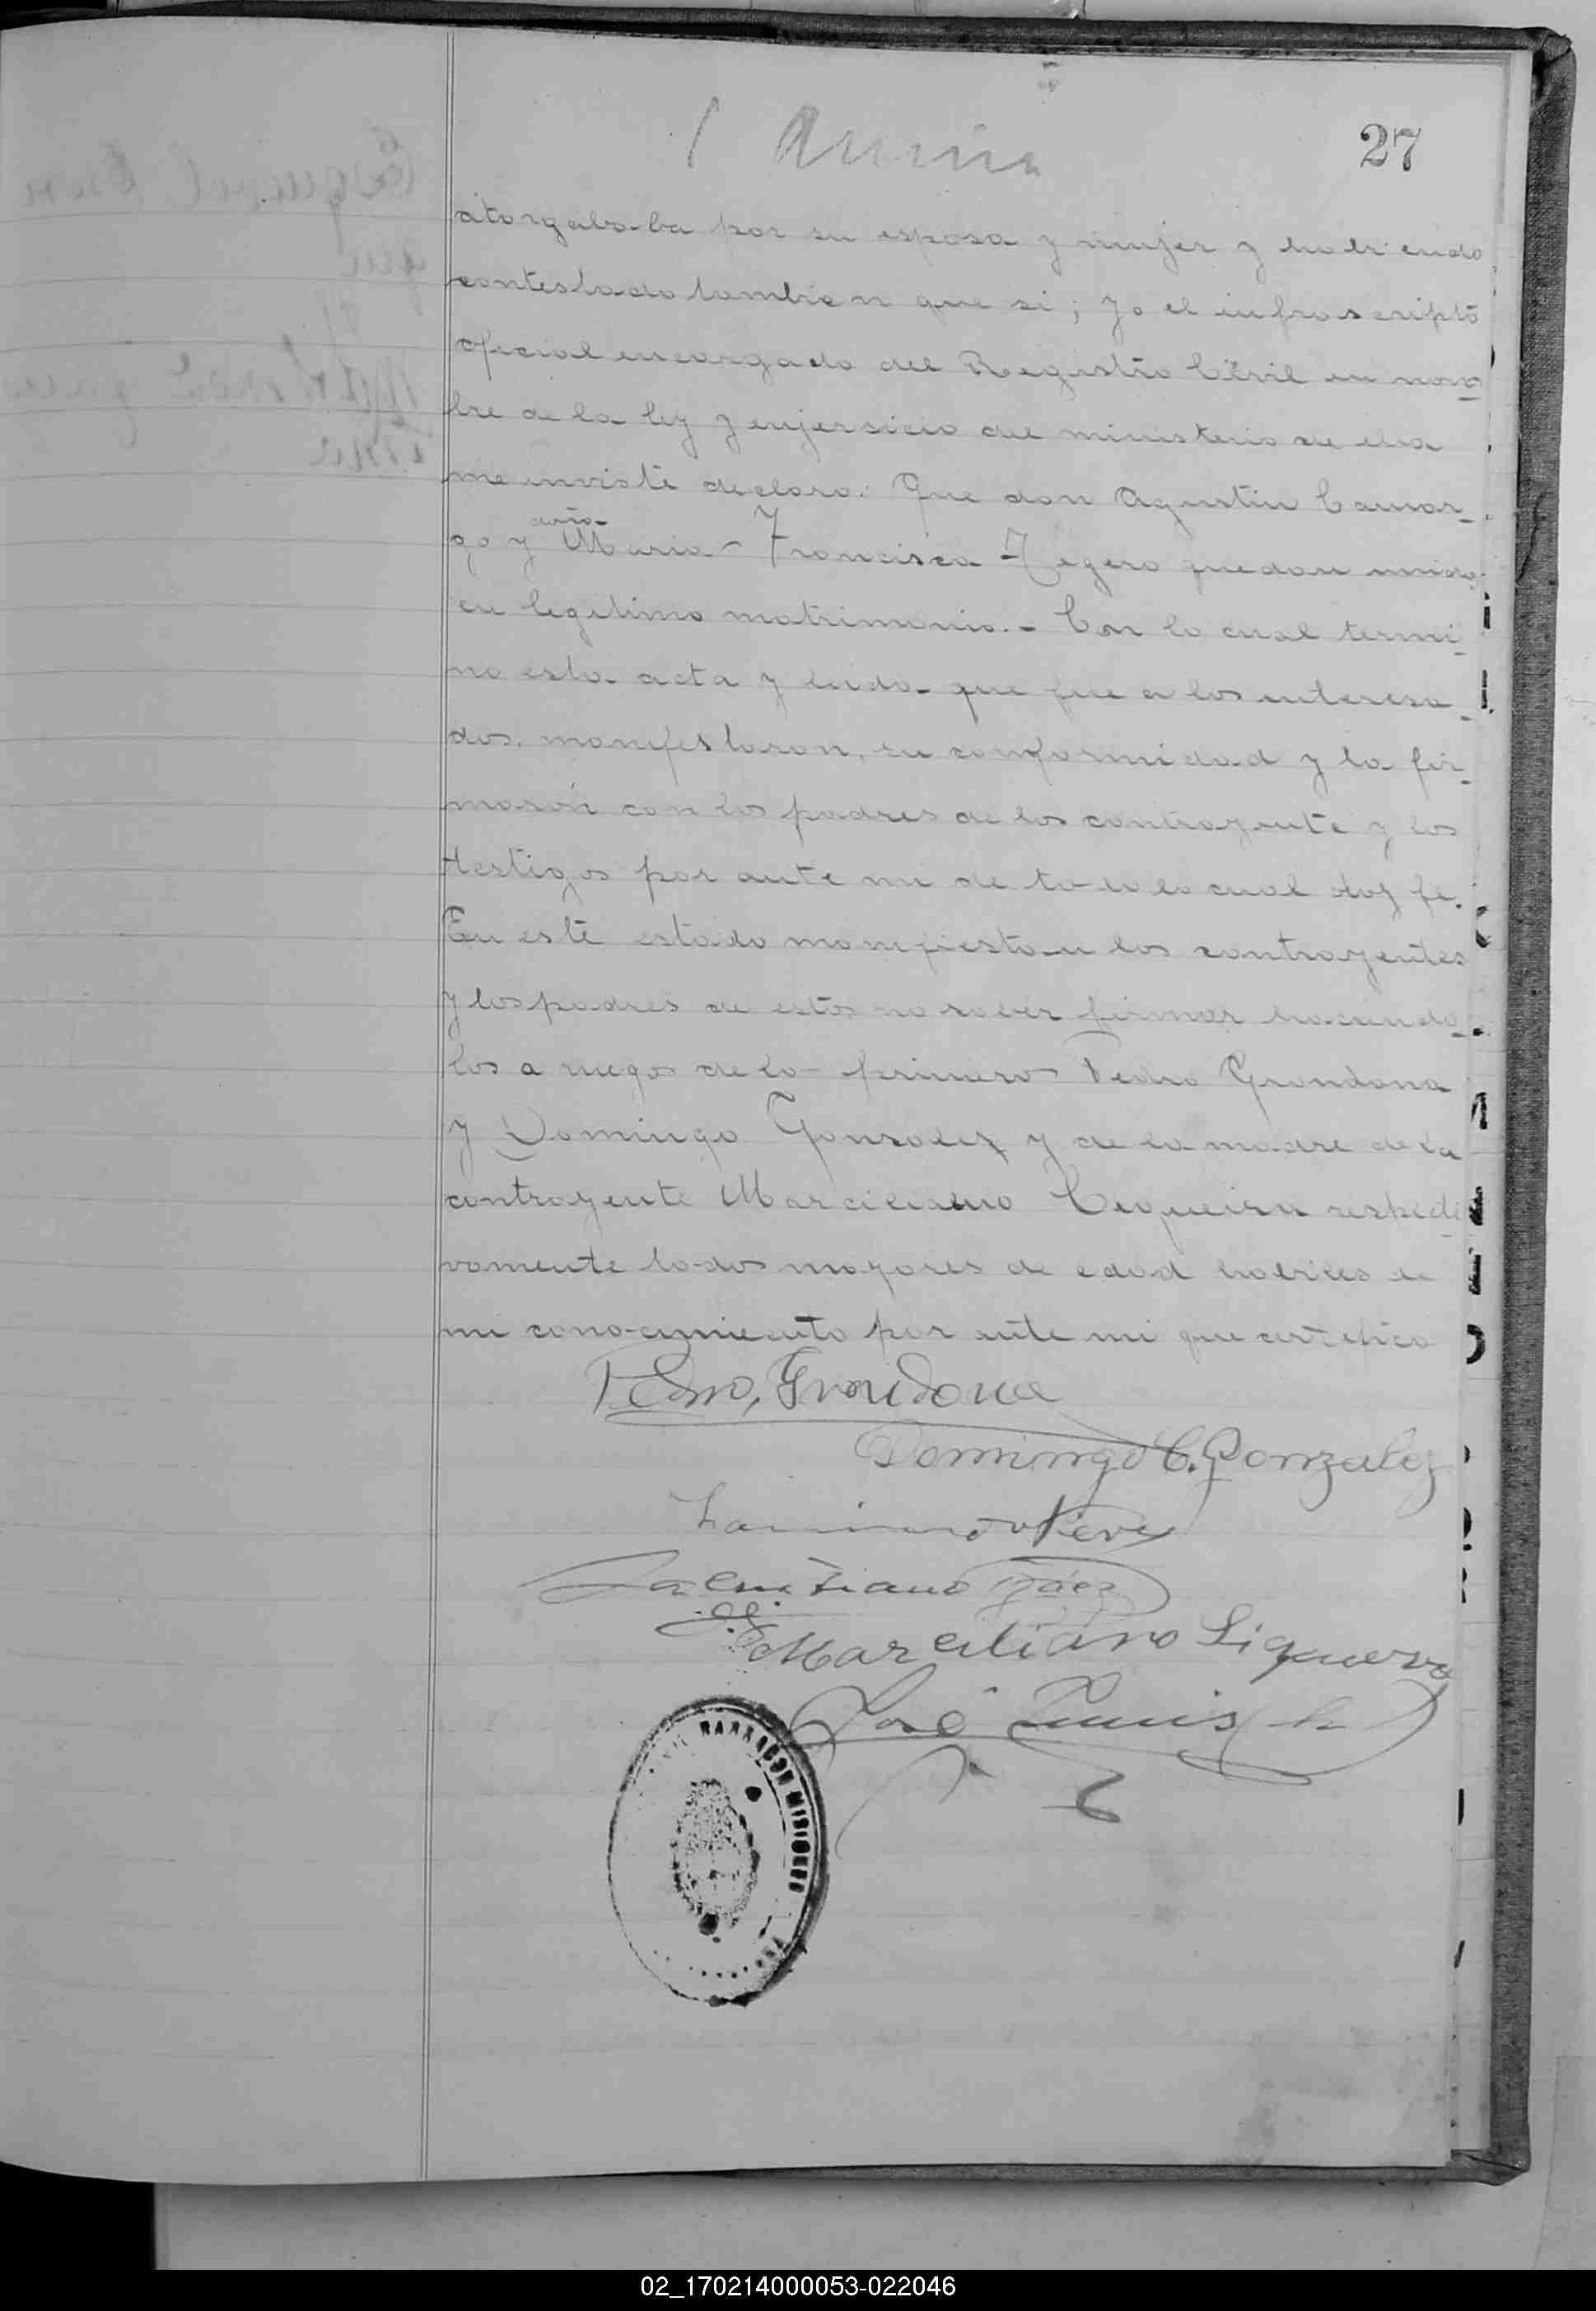 27
atorgaba-ba por su esposa y mujer y habiendo
contestado tambien que si; yo el infrascripto
oficial encargado del Registro Civil en nom
bre de la ley y enjersicio del ministerio de ella
me inviste declaro: Que don Agustin Camar-
go y doña Maria Francisca Tegero quedan unidos
en legitimo matrimonio.- Con lo cual termi-
no esta acta y leida que fue a los interesa-
dos, manifestaron, su conformidad y la fir-
marón con los padres de los contrayente y los
testigos por ante mi de todo lo cual doy fe.
En este estado manifiestan los contrayentes
y los padres de estos no saber firmar haciendo-
los a ruegos de lo primero Pedro Grondona
y Domingo Gonzalez y de la madre de la
contrayente Marciliano Cequeira respecti-
vamente todos mayores de edad habiles de
mi conocimiento por ante mi que certifico
Pedro, Grondona
Domingo C. Gonzalez
Marciliano Siqueira
José
BARRACON MISIONES
02_170214000053-022046